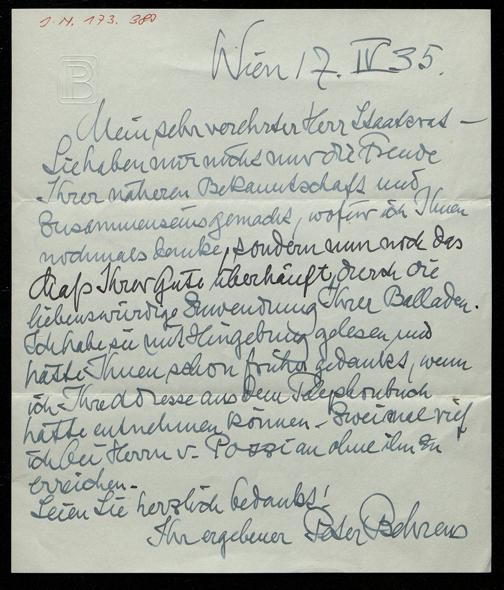 J.N. 173.380
PB
Wien 17. IV 35.
Mein sehr verehrter Herr Staatsrat –
Sie haben mir nicht nur die Freude
Ihrer näheren Bekanntschaft und
Zusammenseins gemacht, wofür ich Ihnen
nochmals danke, sondern nun noch das
Maß Ihrer Güte überhäuft, durch die
liebenswürdige Zuwendung Ihrer Balladen.
Ich habe sie mit Hingebung gelesen und
hätte Ihnen schon früher gedankt, wenn
ich Ihre Adresse aus dem Telephonbuch
hätte entnehmen können. Zweimal rief
ich bei Herrn v. Pozzi an ohne ihn zu
erreichen.
Seien Sie herzlich bedankt!
Ihr ergebener Peter Behrens